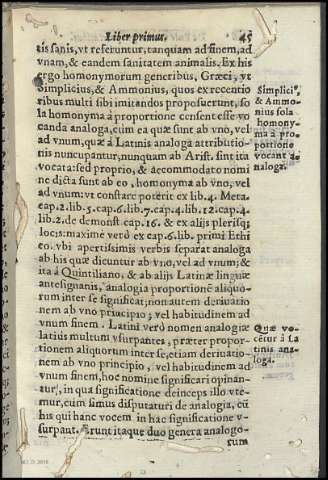 Liber primus. 45
tis sanis, vt referuntur, tanquam ad finem, ad
vnam, & eandem sanitatem animalis. Ex his
ergo homonymorum generibus, Græci, vt
Simplicius, & Ammonius, quos ex recentio
ribus multi sibi imitandos proposuerunt, so
la homonyma à proportione censent esse vo
canda analoga, cum ea quæ sunt ab vno, vel
ad vnum, quæ à Latinis analoga attributio-
nis nuncupantur, nunquam ab Arist. sint ita
vocata: sed proprio, & accommodato nomi
ne dicta sunt ab eo, homonyma ab vno, vel
ad vnum: vt constare poterit ex lib. 4. Meta.
cap. 2. lib. 5. cap. 6. lib. 7. cap. 4. lib. 12. cap. 4.
lib. 2. de demonst. cap. 16. & ex alijs plerisq;
locis: maximè verò ex cap. 6. lib. primi Ethi
co. vbi apertissimis verbis separat analoga
ab his quæ dicuntur ab vno, vel ad vnum; &
ità à Quintiliano, & ab alijs Latinæ linguæ
antesignanis, analogia proportionē aliquo-
rum inter se significat; non autem deriuatio
nem ab vno principio; vel habitudinem ad
vnum finem. Latini verò nomen analogiæ
latiùs multum vsurpantes, præter propor-
tionem aliquorum inter se, etiam deriuatio-
nem ab vno principio, vel habitudinem ad
vnum finem, hoc nomine significari opinan-
tur, in qua significatione deinceps illo vte-
mur, cum simus disputaturi de analogia, cū
his qui hanc vocem in hac significatione v-
surpant. Erunt itaque duo genera analogo-
rum
Simplici⁹,
& Ammo-
nius sola
homony-
ma à pro-
portione
vocant a-
naloga.
Quæ vo-
cētur à La
tinis ana-
loga.